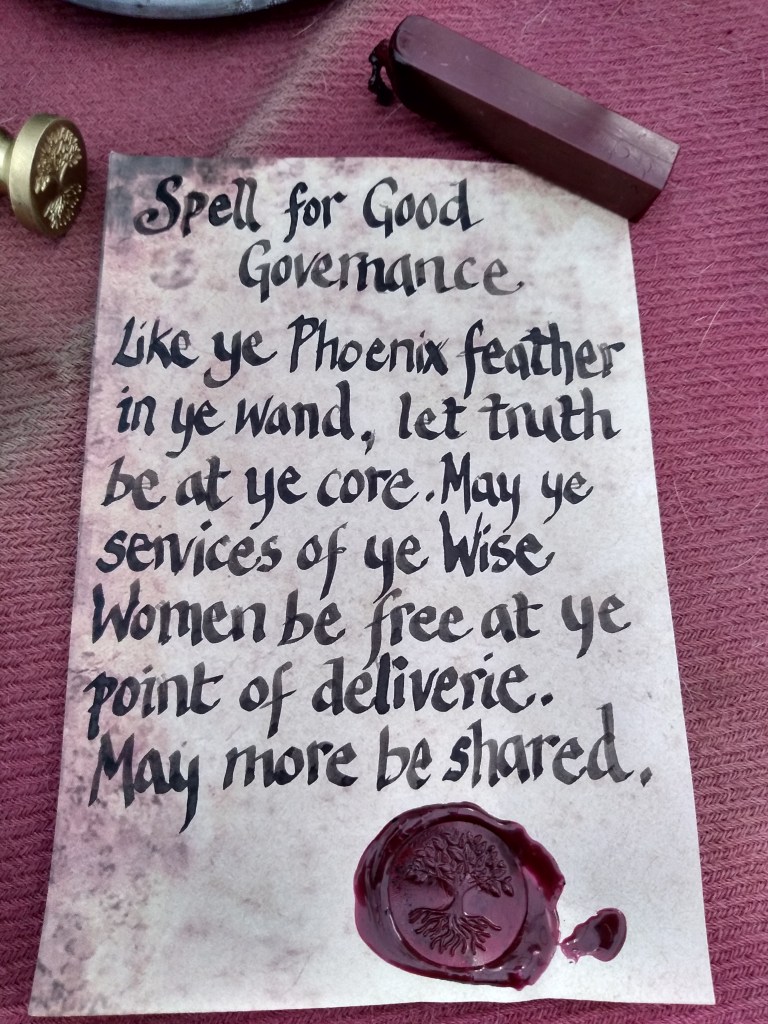 Spell for Good
Governance
Like ye Phoenix feather
in ye wand, let truth
be at ye core. May ye
services of ye Wise
Women be free at ye
point of deliverie.
May more be shared.